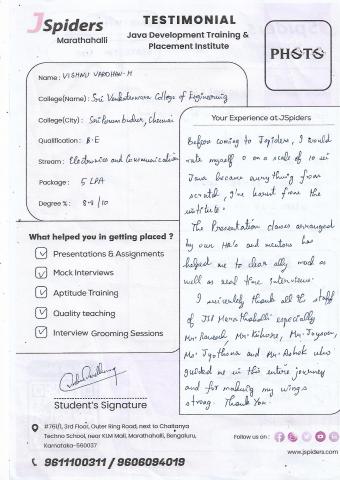 JSpiders
Marathahalli
TESTIMONIAL
Java Development Training &
Placement Institute
PHOTO
Name : VISHNU VARDHAN-M
College(Name) : Sri Venkateswara College of Engineering
College(City) : Sriperumbudur, Chennai
Qualification : B.E
Stream : Electronics and Communication
Package : 5 LPA
Degree % : 8.8/10
What helped you in getting placed ?
Presentations & Assignments
Mock Interviews
Aptitude Training
Quality teaching
Interview Grooming Sessions
Student's Signature
Your Experience at JSpiders
Before coming to Jspiders, I would
rate myself 0 on a scale of 10 in
Java because everything from
scratch, I've learnt from the
institute.
The Presentation classes arranged
by our HRs and mentors has
helped me to clear all mock as
well as real time interviews.
I sincerely thank all the staff
of JSP Marathahalli especially
Mr. Ramesh, Mr. Kishore, Mr. Jayson,
Ms. Jyothsna and Mr. Ashok who
guided me in this entire journey
and for making my wings
strong. Thank You.
#761/1, 3rd Floor, Outer Ring Road, next to Chaitanya
Techno School, near KLM Mall, Marathahalli, Bengaluru,
Karnataka-560037
9611100311 / 9606094019
Follow us on :
www.jspiders.com